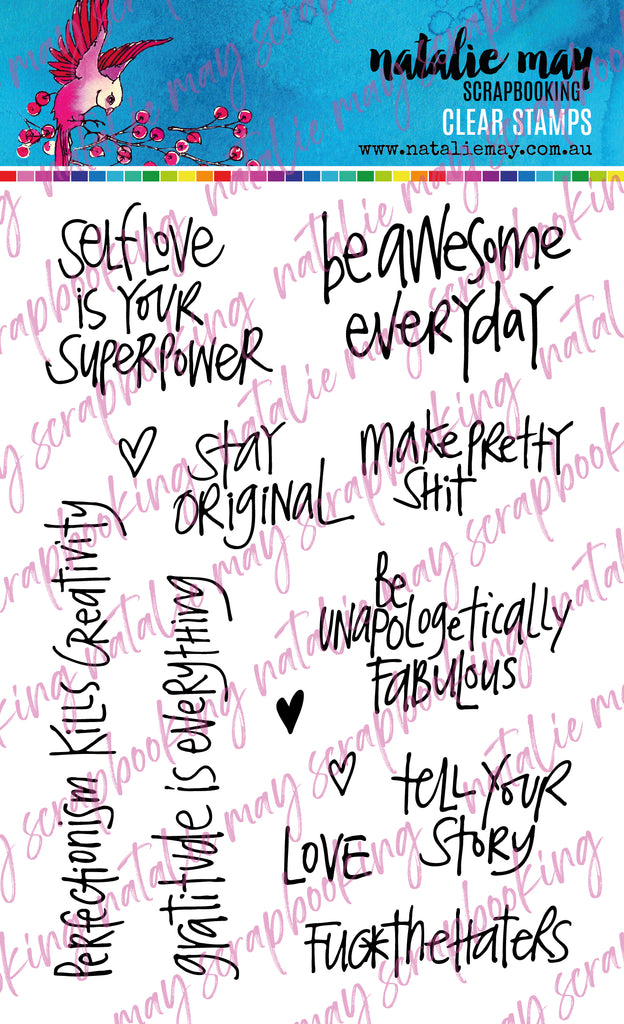 natalie may
SCRAPBOOKING
CLEAR STAMPS
www.nataliemay.com.au
SELF LOVE
is YOUR
SUPERPOWER
be awesome
everyday
Stay
ORIGINAL
make pretty
SHIT
Perfectionism Kills Creativity
gratitude is everything
Be
UNAPOLOgetically
FABULOUS
tell YOUR
STORY
LOVE
FUC*the Haters
natalie may scrapbooking